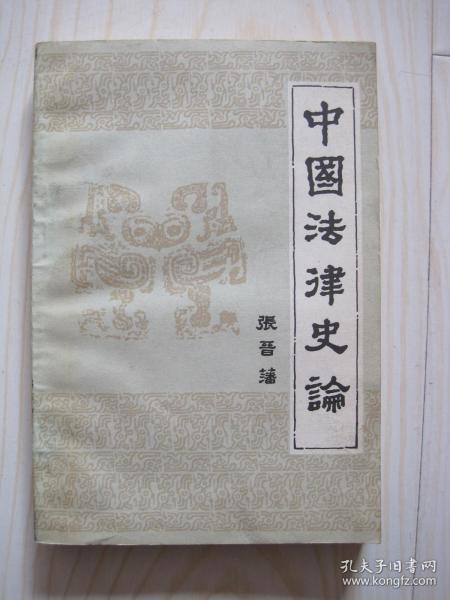 中國法律史論
張晉藩
孔夫子旧书网
www.kongfz.com